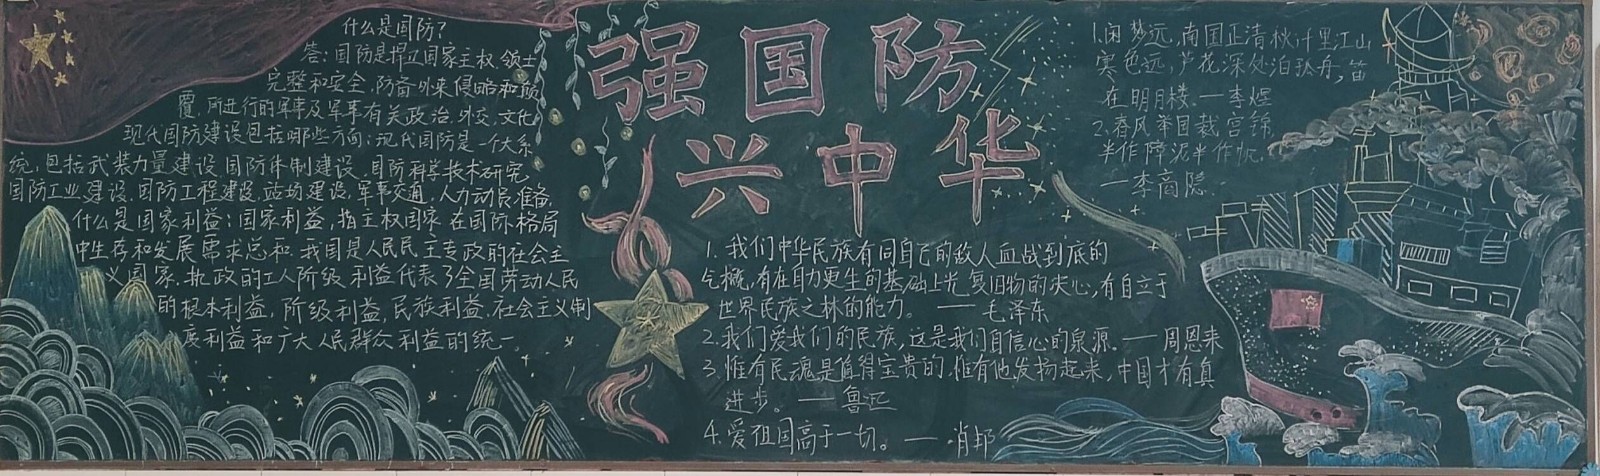 什么是国防？
答：国防是捍卫国家主权、领土
完整和安全，防备外来侵略和颠
覆，所进行的军事及军事有关政治、外交、文化
现代国防建设包括哪些方面：现代国防是一个大系
统，包括武装力量建设、国防体制建设、国防科学技术研究、
国防工业建设、国防工程建设、战场建设、军事交通、人力动员准备。
什么是国家利益：国家利益，指主权国家在国际格局
中生存和发展需求总和，我国是人民民主专政的社会主
义国家，执政的工人阶级利益代表了全国劳动人民
的根本利益，阶级利益，民族利益，社会主义制
度利益和广大人民群众利益的统一。
强国防
兴中华
1. 我们中华民族有同自己的敌人血战到底的
气概，有在自力更生的基础上光复旧物的决心，有自立于
世界民族之林的能力。——毛泽东
2. 我们爱我们的民族，这是我们自信心的泉源。——周恩来
3. 惟有民魂是值得宝贵的，惟有他发扬起来，中国才有真
进步。——鲁迅
4. 爱祖国高于一切。——肖邦
1.闲梦远，南国正清秋，千里江山
寒色远，芦花深处泊孤舟，笛
在明月楼。—李煜
2.春风举国裁宫锦，
半作障泥半作帆。
—李商隐